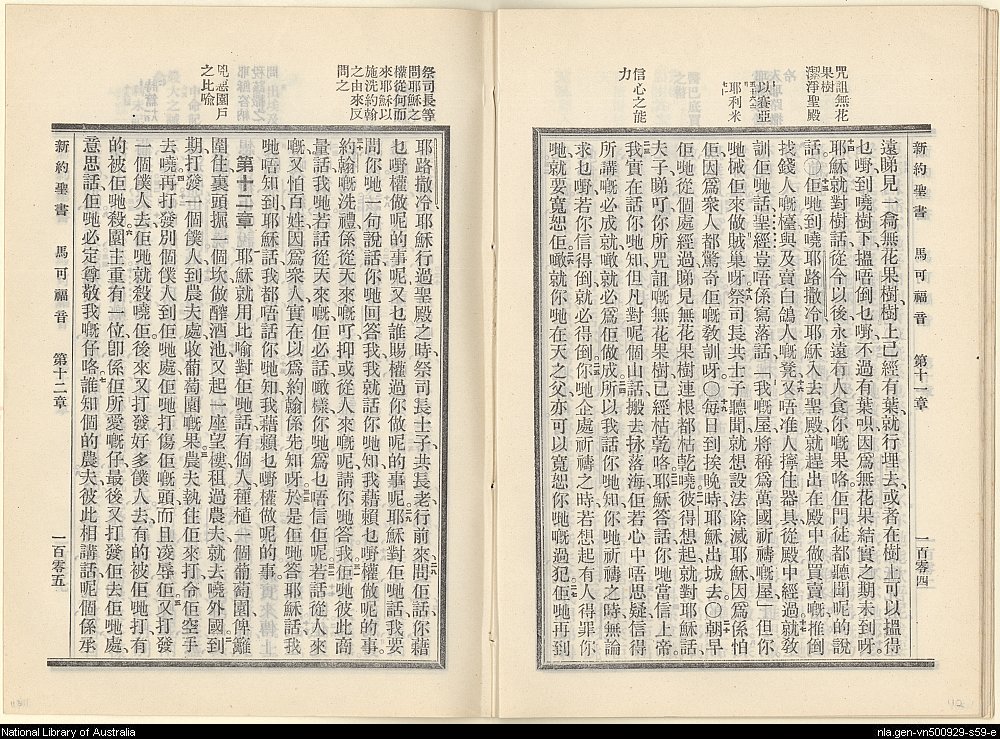 新約聖書 馬可福音 第十一章 一百零四
咒詛無花
果樹
潔淨聖殿
以賽亞
耶利米
信心之能
力
遠睇見一樖無花果樹樹上已經有葉就行埋去或者在樹上可以搵得
乜嘢到嘵樹下搵唔倒乜嘢不過有葉唄因爲無花果結實之期未到呀
耶穌就對樹話從今以後永遠冇人食你嘅果咯佢門徒都聽聞呢的說
話〇佢哋到嘵耶路撒冷耶穌入去聖殿就趕出在殿中做買賣嘅推倒
找錢人嘅檯與及賣白鴿人嘅凳又唔准人擰住器具從殿中經過就敎
訓佢哋話聖經豈唔係寫落話「我嘅屋將稱爲萬國祈禱嘅屋」但你
哋械佢來做賊巢呀祭司長共士子聽聞就想設法除滅耶穌因爲係怕
佢因爲衆人都驚奇佢嘅敎訓呀〇每日到挨晚時耶穌出城去〇朝早
佢哋從個處經過睇見無花果樹連根都枯乾嘵彼得想起就對耶穌話
夫子睇吓你所咒詛嘅無花果樹已經枯乾咯耶穌答話你哋當信上帝
我實在話你哋知但凡對呢個山話搬去抌落海佢若心中唔思疑信得
所講嘅必成就噉就必爲佢做成所以我話你哋知你哋祈禱之時無論
求乜嘢若你信得倒就必得倒你哋企處祈禱之時若想起有人得罪你
哋就要寬恕佢噉就你哋在天之父亦可以寬恕你哋嘅過犯佢哋再到
祭司長等
問耶穌之
權從何而
來耶穌以
施洗約翰
之由來反
問之
兇惡園戶
之比喩
耶路撒冷耶穌行過聖殿之時祭司長士子共長老行前來問佢話你藉
乜嘢權做呢的事呢又乜誰賜權過你做呢的事呢耶穌對佢哋話我要
問你哋一句說話你哋回答我我就話你哋知我藉賴乜嘢權做呢的事
約翰嘅洗禮係從天來嘅吖抑或從人來嘅呢請你哋答我佢哋彼此商
量話我哋若話從天來嘅佢必話噉樣你哋爲乜唔信佢呢若話從人來
嘅又怕百姓因爲衆人實在以爲約翰係先知呀於是佢哋答耶穌話我
哋唔知到耶穌話我都唔話你哋知我藉賴乜嘢權做呢的事
第十二章 耶穌就用比喩對佢哋話有個人種植一個葡萄園俾籬
圍住裏頭掘一個坎做醡酒池又起一座望樓租過農夫就去嘵外國到
期打發一個僕人到農夫處收葡萄園嘅果農夫執住佢來打令佢空手
去嘵再打發別個僕人到佢哋處佢哋打傷佢嘅頭而且凌辱佢又打發
一個僕人去佢哋就殺嘵佢後來又打發好多僕人去有的被佢哋打有
的被佢哋殺園主重有一位卽係佢所愛嘅仔最後又打發佢去佢哋處
意思話佢哋必定尊敬我嘅仔咯誰知個的農夫彼此相講話呢個係承
新約聖書 馬可福音 第十二章 一百零五
National Library of Australia
nla.gen-vn500929-s59-e